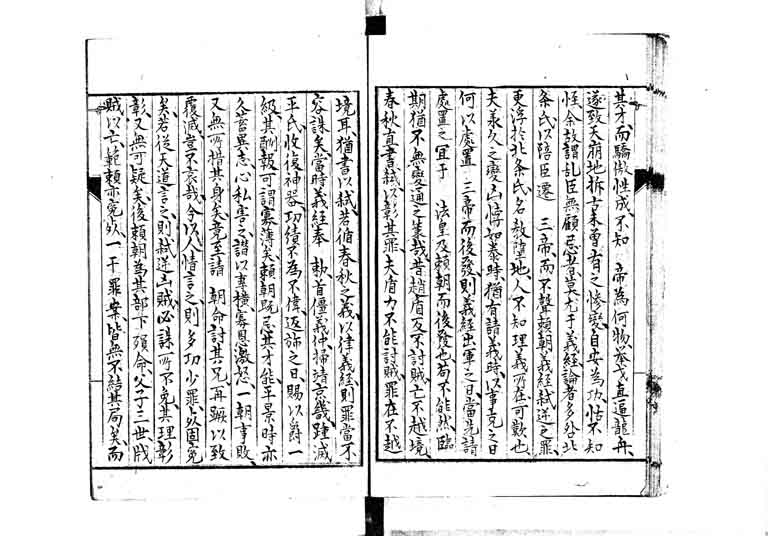 其才而驕傲性成不知　帝為何物擧戈直逼龍舟
遂致天崩地拆古来曾有之惨變自安為功恬不知
恠余故謂乱臣無顧忌者莫尤于義經論者多咎北
条氏以陪臣遷　三帝而不聲頼朝義經弑逆之罪
更浮於北条氏名教墮地人不知理義所在可歎也
夫義久之變凶悖如泰時猶有請義時以事克之日
何以處置　三帝而後發則義經出軍之日當先請
處置之宜于　法皇及頼朝而後發也苟不能然臨
期猶不無變通之策哉昔趙盾反不討賊亡不越境
春秋直書弑以彰其罪夫盾力不能討賊罪在不越
境耳猶書以弑若循春秋之義以律義經則罪當不
容誅矣當時義經奉　勅首僵義仲掃清京畿踵滅
平氏收復神器功績不為不偉返斾之日賜以爵一
級其酬報可謂寡薄矣頼朝既忌其才能平景時亦
久蓄異志心私害之譖以專横寡恩激怒一朝事敗
又無所措其身矣竟至請　朝命討其兄再蹶以致
覆滅豈不哀哉今以人情言之則多功少罪上固冤
矣若從天道言之則弑逆凶賊必誅所不免其理彰
彰又無可疑矣後頼朝為其部下殞命父子三世戕
賊以亡範頼亦冤死一干罪案皆無不結其局矣而